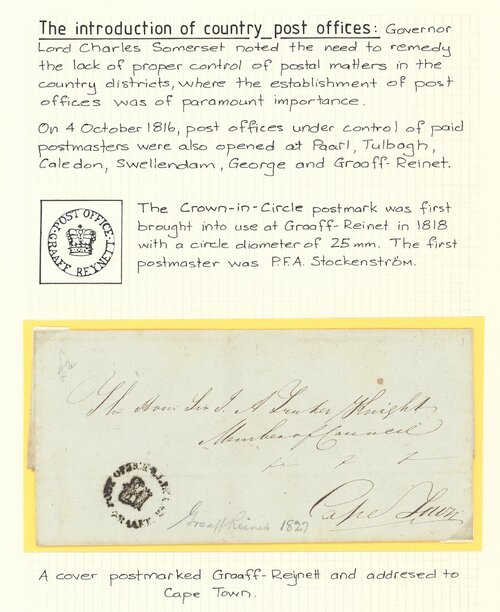 The introduction of country post offices: Governor
Lord Charles Somerset noted the need to remedy
the lack of proper control of postal matters in the
country districts, where the establishment of post
offices was of paramount importance.
On 4 October 1816, post offices under control of paid
postmasters were also opened at Paarl, Tulbagh,
Caledon, Swellendam, George and Graaff-Reinet.
POST OFFICE
GRAAFF REYNETT
The Crown-in-Circle postmark was first
brought into use at Graaff-Reinet in 1818
with a circle diameter of 25 mm. The first
postmaster was P.F.A. Stockenström.
The Honr Sir J. A Truter Knight
Member of Council
Cape Town
POST OFFICE
GRAAFF
Graaff Reinet 1827
A cover postmarked Graaff-Reijnett and addresed to
Cape Town.